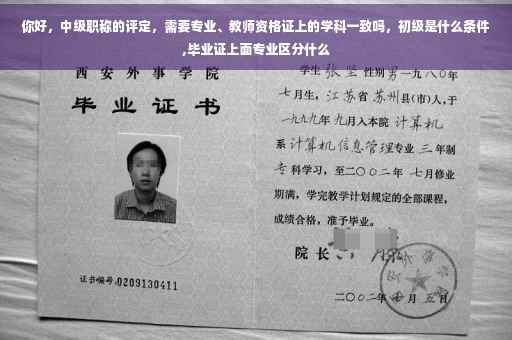 你好，中级职称的评定，需要专业、教师资格证上的学科一致吗，初级是什么条件
,毕业证上面专业区分什么
西安外事学院
毕业证书
证书编号:0209130411
学生张坚性别男一九八〇年
七月生，江苏省苏州县(市)人，于
一九九九年九月入本院计算机
系计算机信息管理专业三年制
专科学习，至二〇〇二年七月修业
期满，学完教学计划规定的全部课程，
成绩合格，准予毕业。
院长
二〇〇二年七月五日